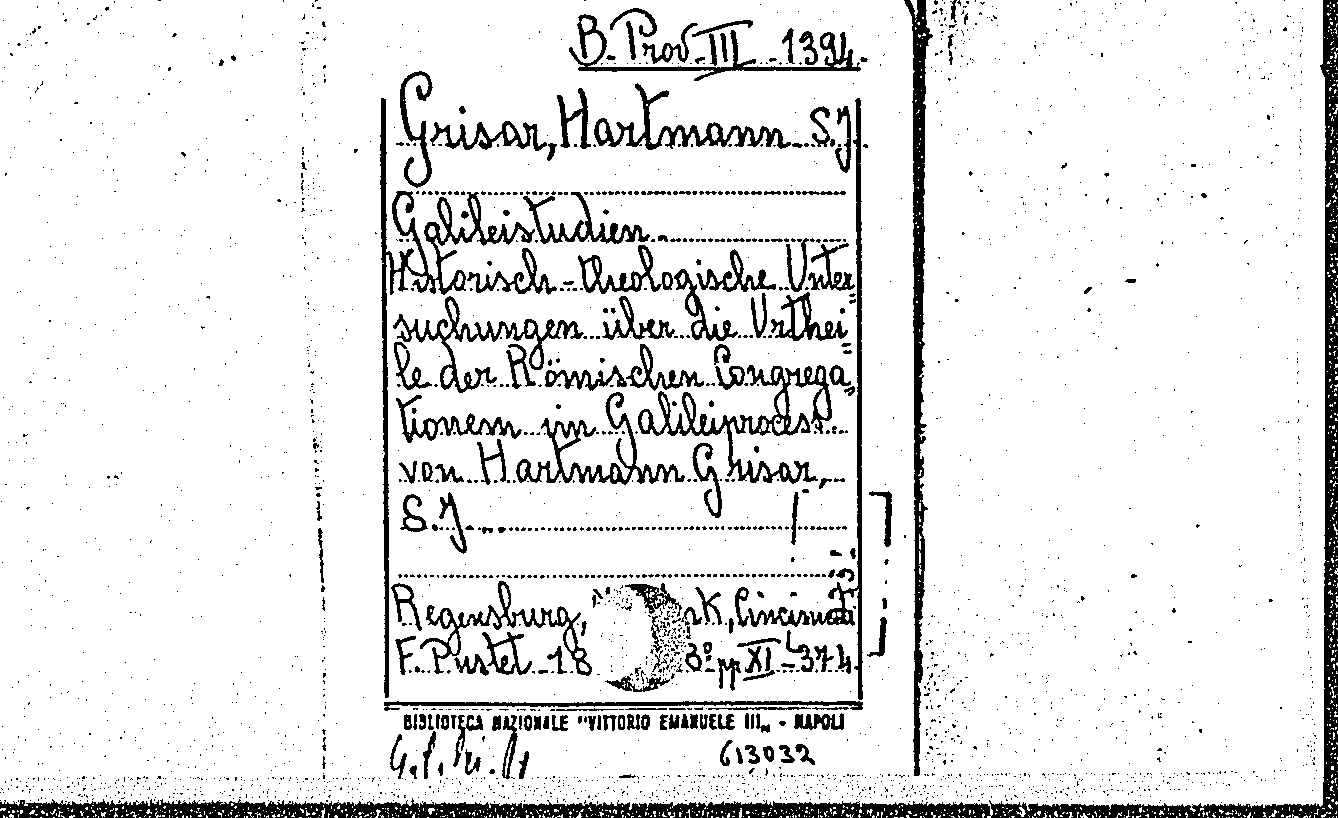 B. Prov. III - 1394.
Grisar, Hartmann S.J.
Galileistudien.
Historisch-theologische Unter
suchungen über die Urthei
le der Römischen Congrega
tionem im Galileiprocess.
von Hartmann Grisar,
S.J.
Regensburg, Cincinnati
F. Pustet 18 8º pp XI - 374.
BIBLIOTECA NAZIONALE "VITTORIO EMANUELE III„ - NAPOLI
613032